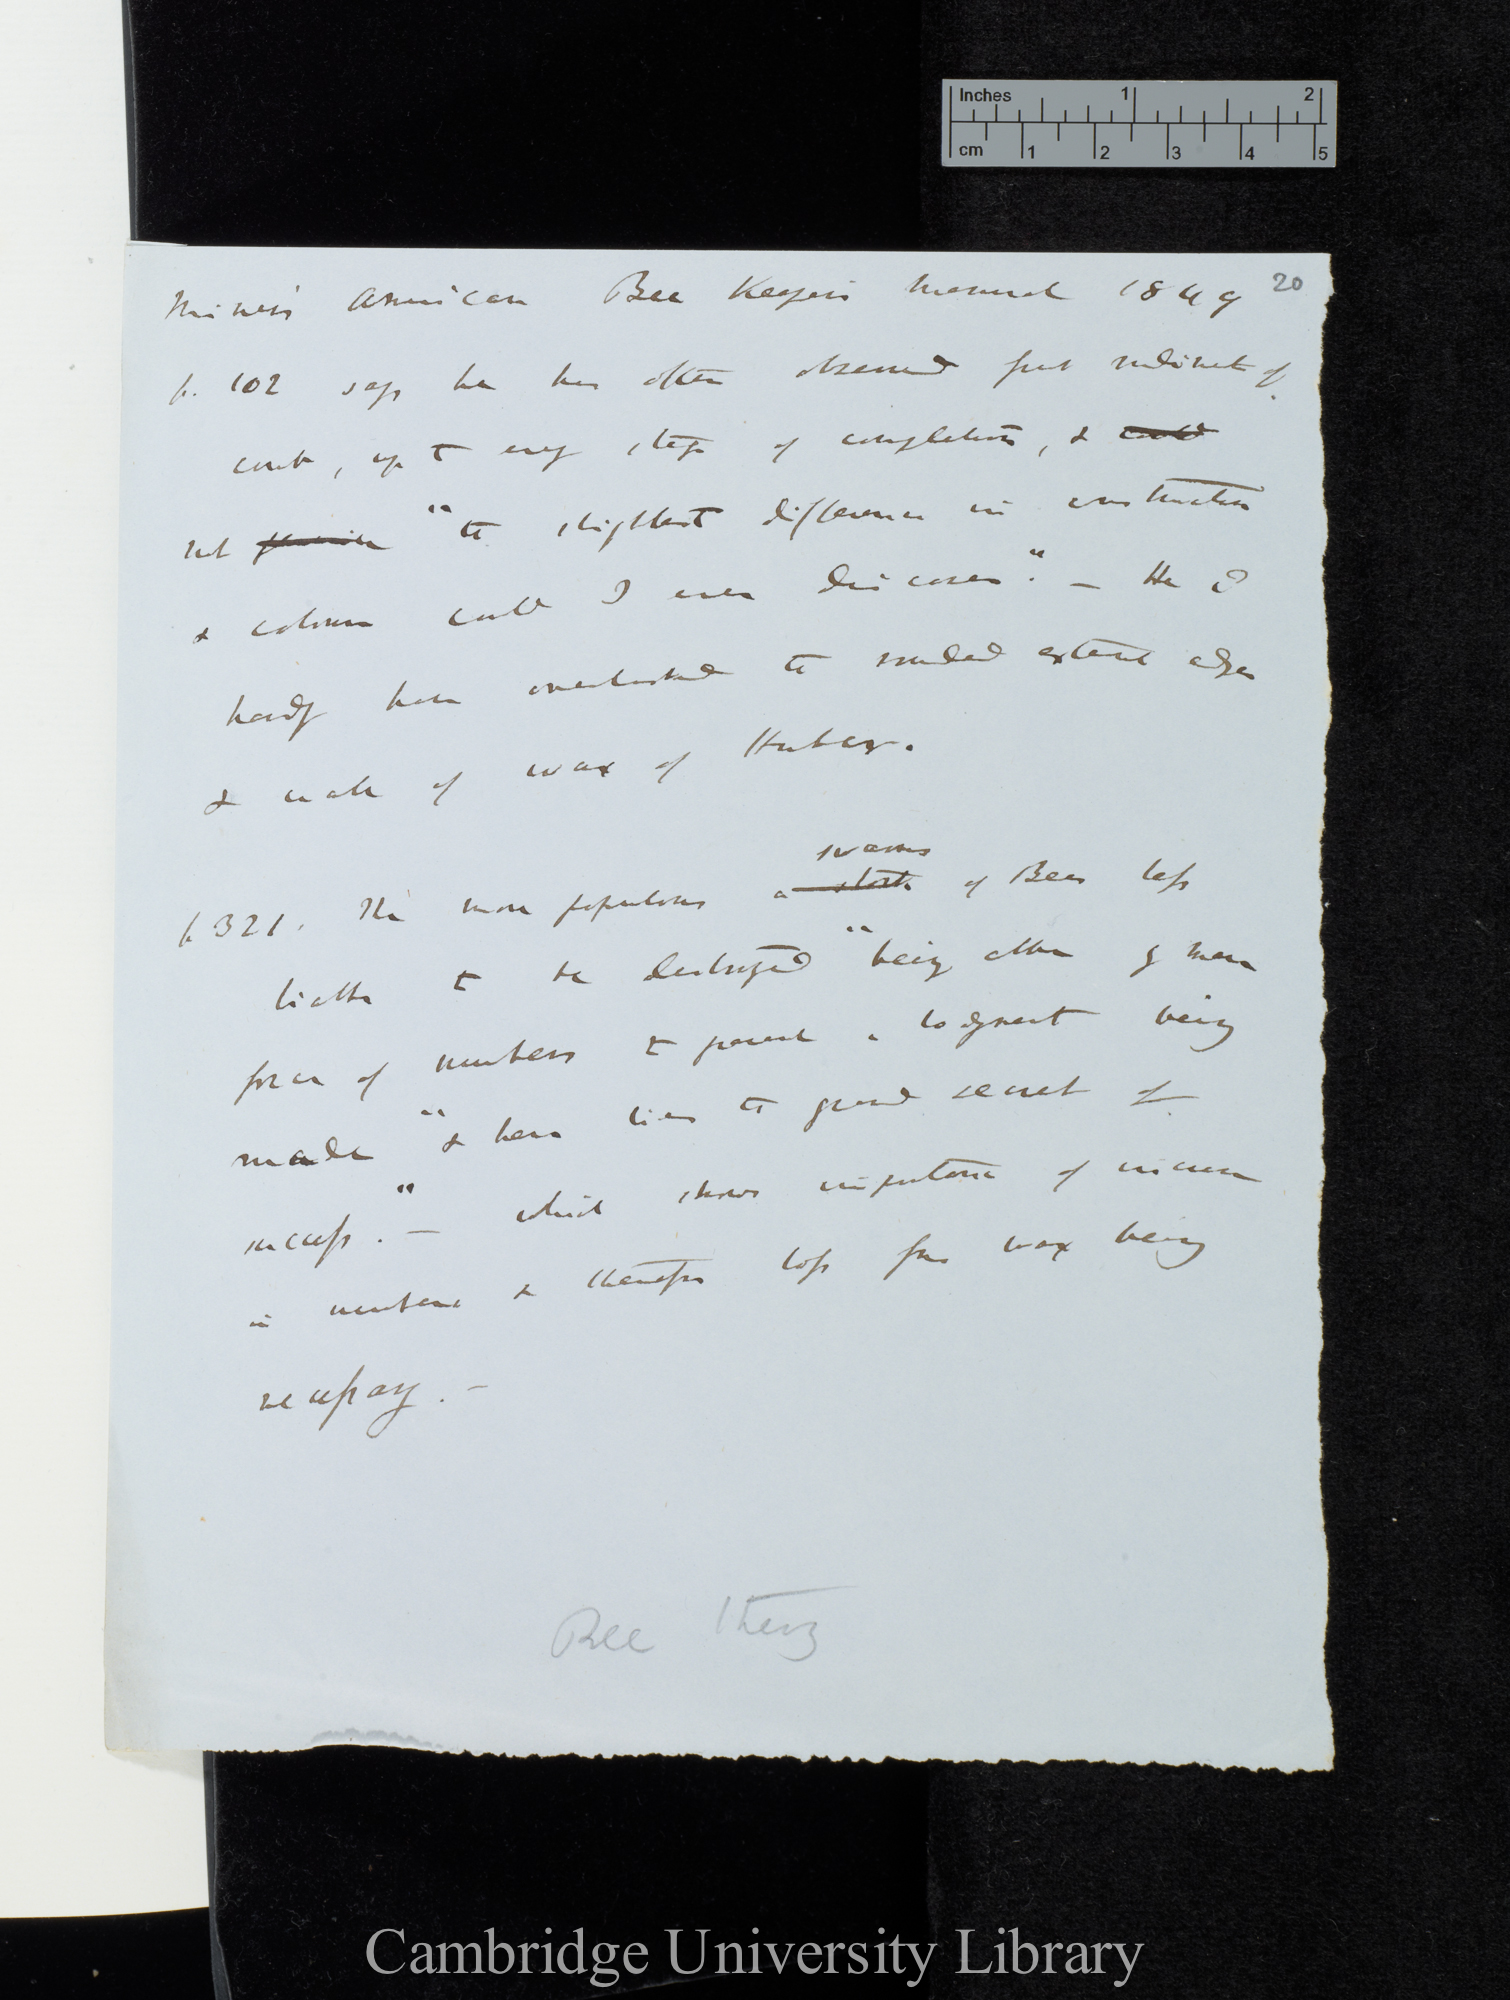 Inches 1 2
cm 1 2 3 4 5
20
Miner's American Bee Keepers Manual 1849
p. 102 says he has often observed first rudiment of
comb, up to every stage of completion, & could
not perceive "the slightest difference in construction
& colour could I ever discover". — He cd
hardly have overlooked the external edges
& scale of wax of Huber.
swarms
p 321. The more populous a stock of Bees less
liable to be destroyed "being able by mere
force of numbers to prevent a lodgment being
made" "& here lies the grand secret of
success." — which shows importance of increase
in numbers & therefore loss from wax being
necessary. —
Bee Theory
Cambridge University Library